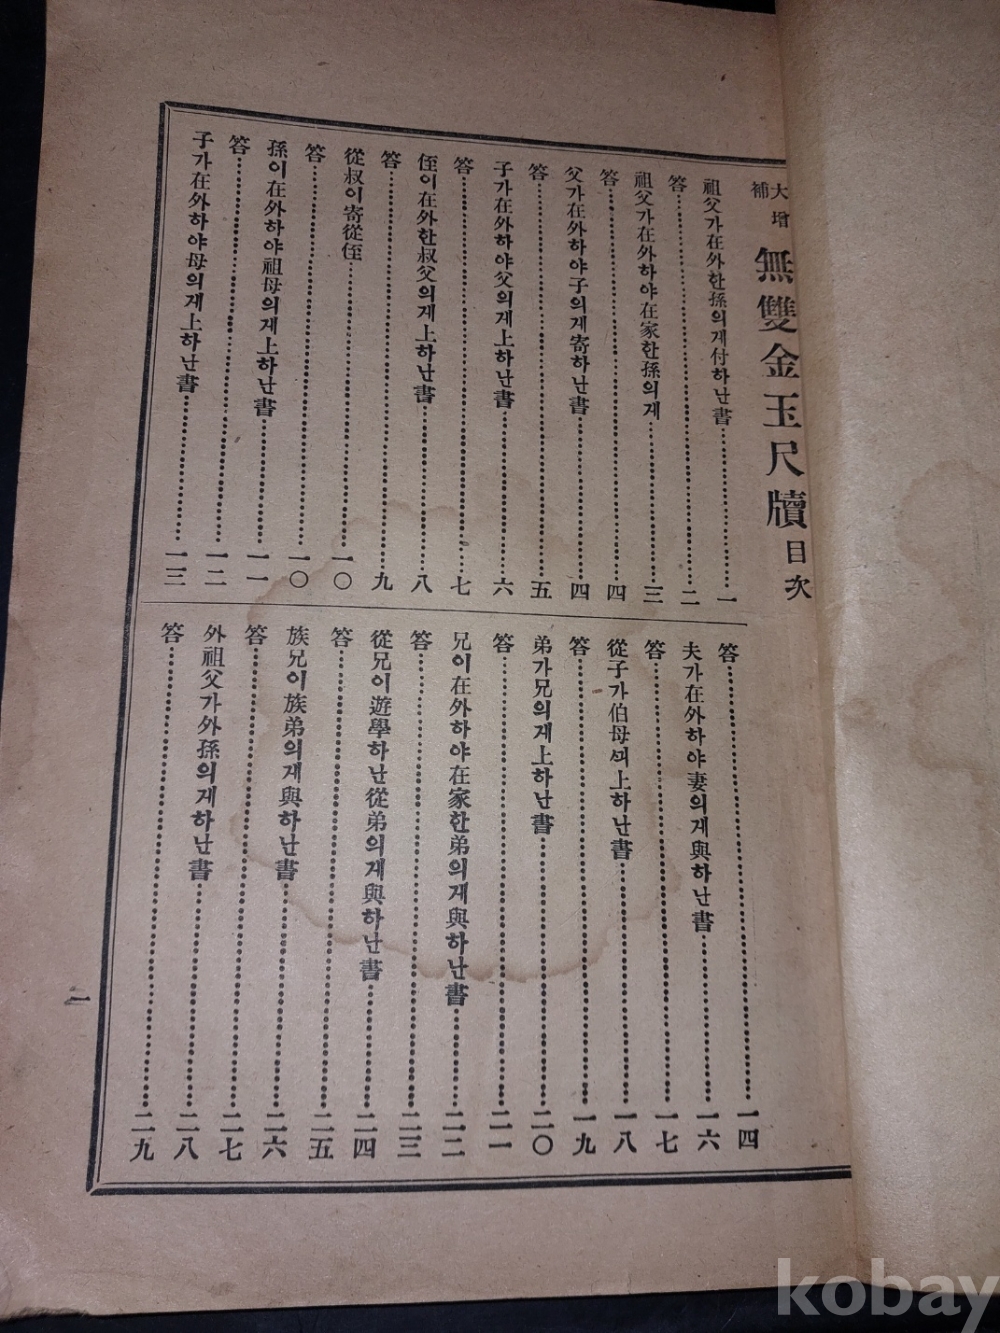 大增補 無雙金玉尺牘目次
祖父가在外한孫의게付하난書 一
答 二
祖父가在外하야在家한孫의게 三
答 四
父가在外하야子의게寄하난書 四
答 五
子가在外하야父의게上하난書 六
答 七
侄이在外한叔父의게上하난書 八
答 九
從叔이寄從侄 一〇
答 一〇
孫이在外하야祖母의게上하난書 一一
答 一二
子가在外하야母의게上하난書 一三
答 一四
夫가在外하야妻의게與하난書 一六
答 一七
從子가伯母ᄭᅴ上하난書 一八
答 一九
弟가兄의게上하난書 二〇
答 二一
兄이在外하야在家한弟의게與하난書 二二
答 二三
從兄이遊學하난從弟의게與하난書 二四
答 二五
族兄이族弟의게與하난書 二六
答 二七
外祖父가外孫의게하난書 二八
答 二九
一
kobay